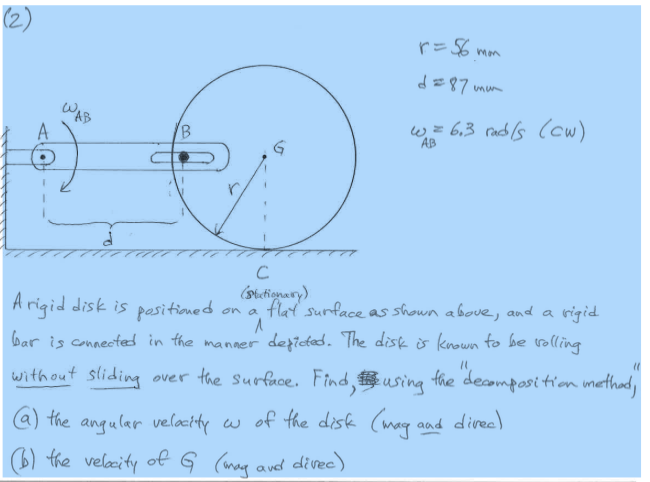 (2)
r = 56 mm
d = 87 mm
ω_AB = 6.3 rad/s (CW)
ω_AB
A
B
G
r
d
C
(stationary)
A rigid disk is positioned on a flat surface as shown above, and a rigid
bar is connected in the manner depicted. The disk is known to be rolling
without sliding over the surface. Find, using the "decomposition method,"
(a) the angular velocity ω of the disk (mag and direc)
(b) the velocity of G (mag and direc)